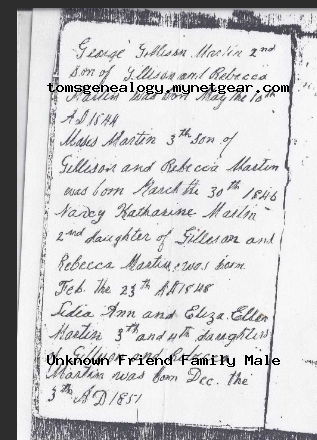 George Gillison Martin 2nd
Son of Gillison and Rebecca
tomsgenealogy.mynetgear.com
Martin was born May the 10th
AD 1844
Moses Martin 3th Son of
Gilleson and Rebecca Martin
was born March the 30th 1846
Nancy Katharine Martin
2nd daughter of Gilleson and
Rebecca Martin, was born
Feb. the 23th AD 1848
Lidia Ann and Eliza Ellen
Martin 3th and 4th daughters
Unknown Friend Family Male
of Gillison and Rebecca
Martin was born Dec. the
3th AD 1851